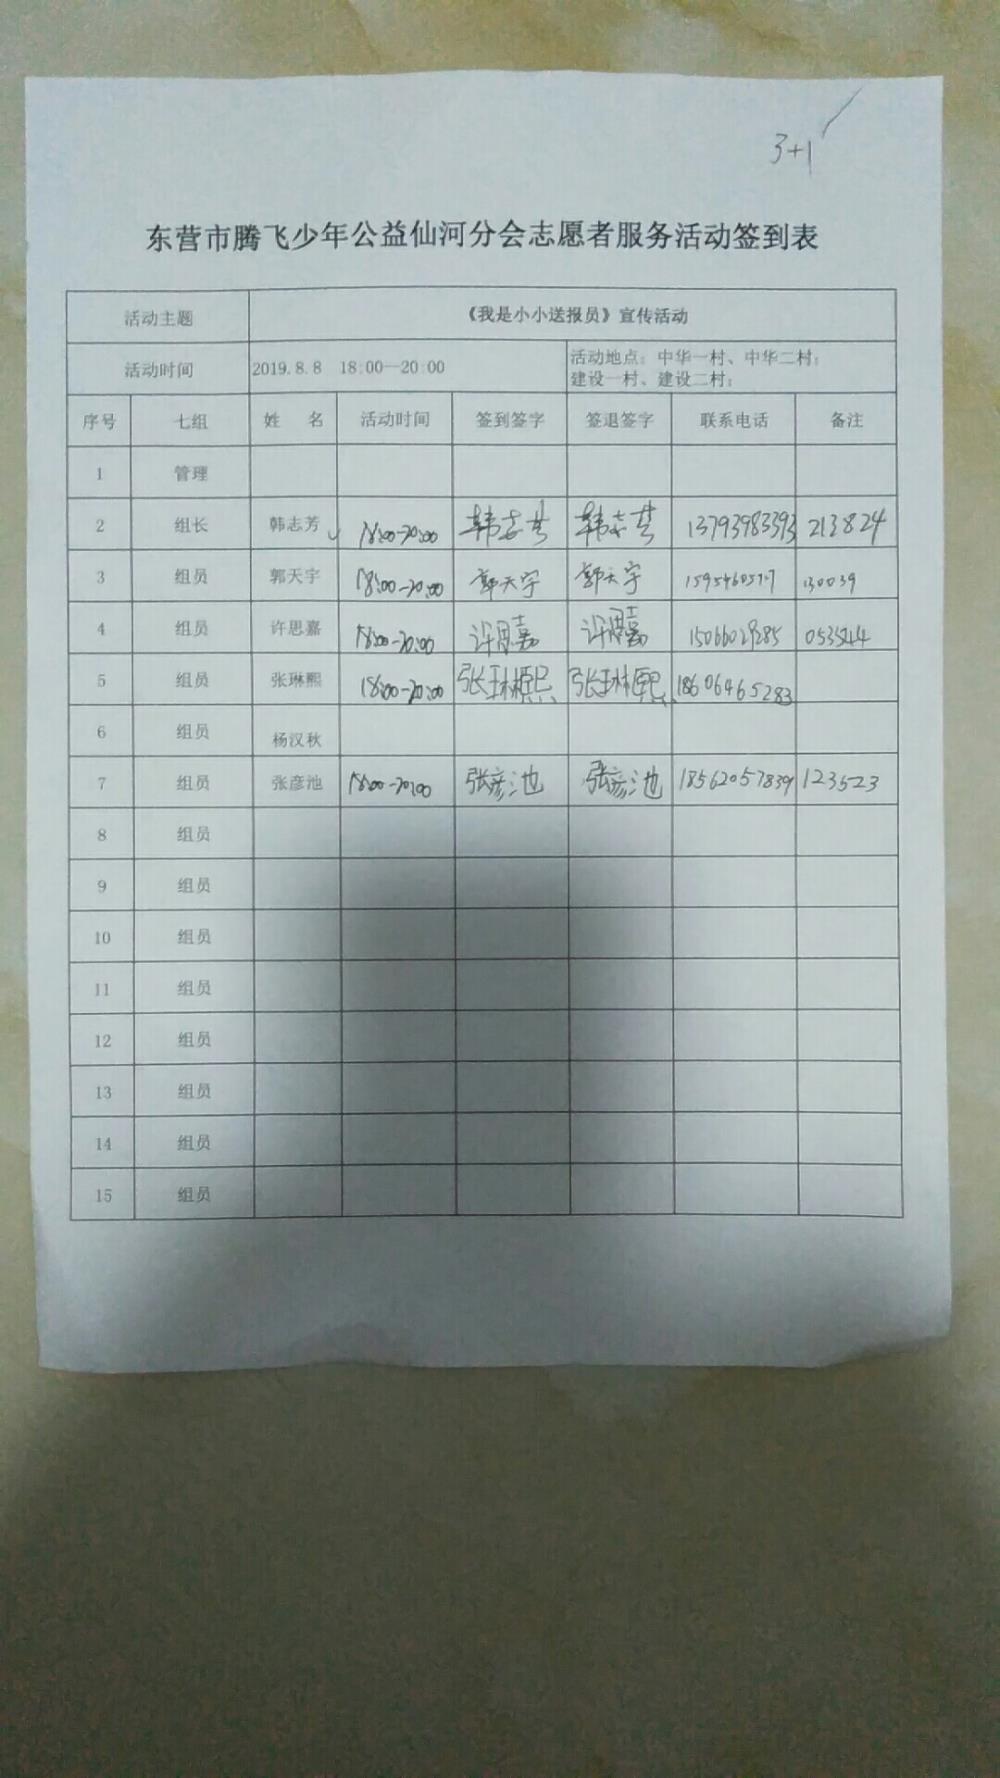 3+1
东营市腾飞少年公益仙河分会志愿者服务活动签到表
活动主题 《我是小小送报员》宣传活动
活动时间 2019.8.8 18:00—20:00 活动地点：中华一村、中华二村；
建设一村、建设二村；
序号 七组 姓 名 活动时间 签到签字 签退签字 联系电话 备注
1 管理
2 组长 韩志芳 18:00-20:00 韩志芳 韩志芳 13793983393 213824
3 组员 郭天宇 18:00-20:00 郭天宇 郭天宇 130039
4 组员 许思嘉 18:00-20:00 许思嘉 许思嘉 15066029285
5 组员 张琳熙 18:00-20:00 张琳熙 张琳熙 18606465283
6 组员 杨汉秋
7 组员 张彦池 18:00-20:00 张彦池 张彦池 18562057839 123523
8 组员
9 组员
10 组员
11 组员
12 组员
13 组员
14 组员
15 组员